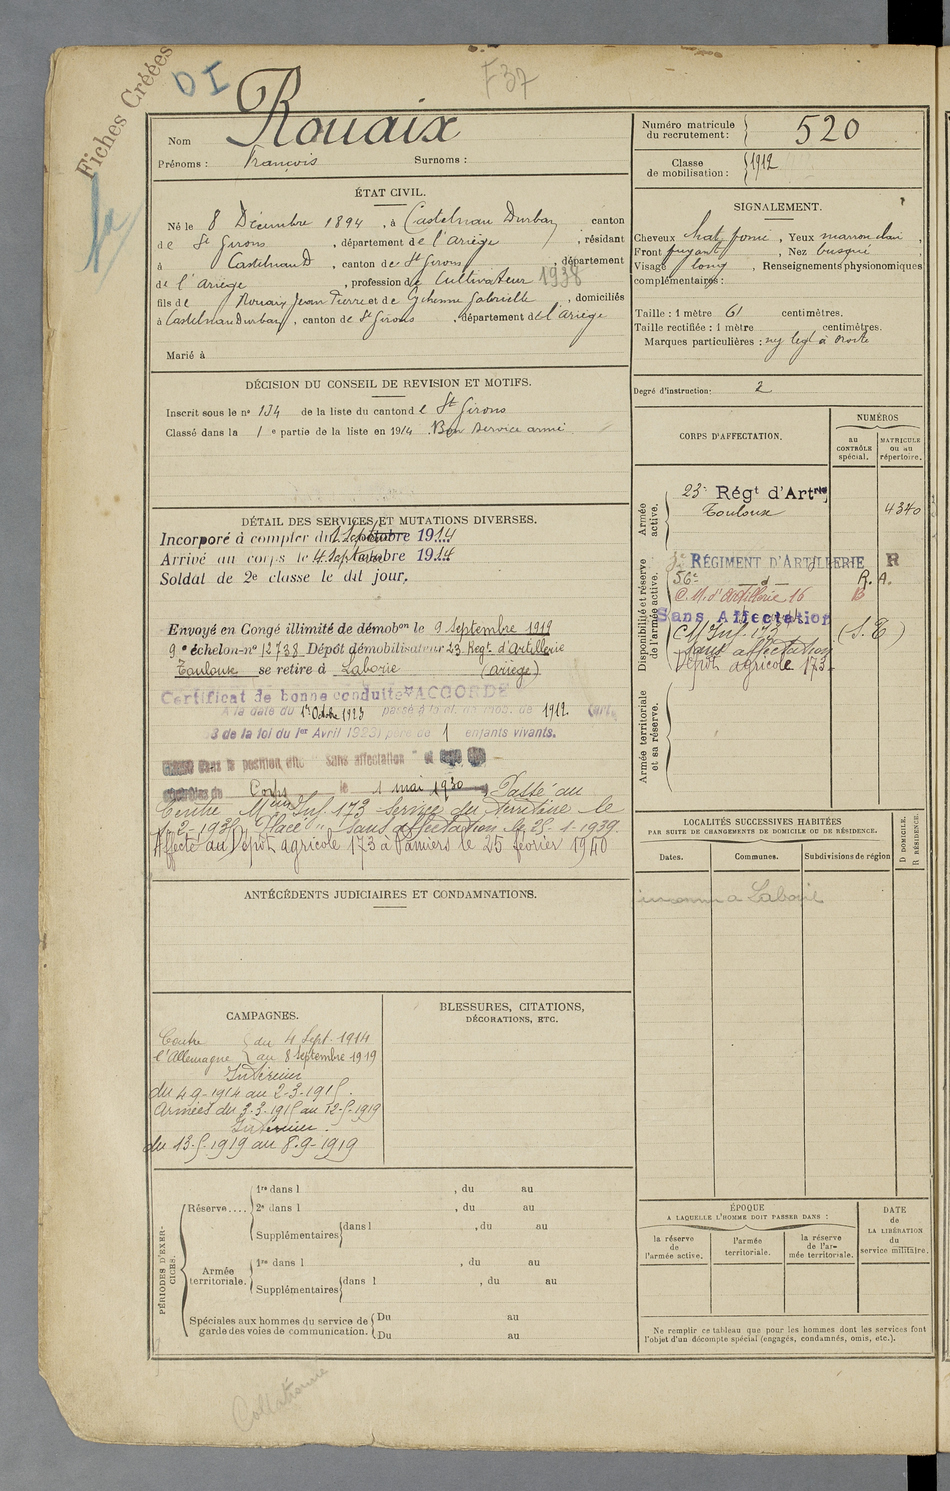 Fiches Créées
DI
F37
Nom Rouaix
Prénoms : François Surnoms :
ÉTAT CIVIL.
Né le 8 Décembre 1894, à Castelnau Durban canton
de St Girons, département de l'Ariège, résidant
à Castelnau D, canton de St Girons, département
de l'Ariège, profession de Cultivateur 1938
fils de Rouaix Jean Pierre et de Gabrielle, domiciliés
à Castelnau Durban, canton de St Girons, département de l'Ariège
Marié à
DÉCISION DU CONSEIL DE REVISION ET MOTIFS.
Inscrit sous le no 134 de la liste du canton de St Girons
Classé dans la 1 e partie de la liste en 1914. Bon service armé
DÉTAIL DES SERVICES ET MUTATIONS DIVERSES.
Incorporé à compter du 1 Septembre 1914
Arrivé au corps le 4 Septembre 1914
Soldat de 2e classe le dit jour.
Envoyé en Congé illimité de démobon le 9 Septembre 1919
9e échelon-no 12738 Dépôt démobilisateur 23 Regt d'Artillerie
Toulouse se retire à Laborie (Ariège)
Certificat de bonne conduite "ACCORDÉ"
A la date du 1er Octobre 1923 passé à la cl. de mob. de 1912. (art.
8 de la loi du 1er Avril 1923) père de 1 enfants vivants.
dans la position dite "sans affectation" et
Corps le 1 mai 1930. Passé au
Centre Mm Inf. 173 Service du territoire le
Placé "Sans affectation" le 25-1-1939.
Affecté au Dépôt agricole 173 à Pamiers le 25 février 1940
ANTÉCÉDENTS JUDICIAIRES ET CONDAMNATIONS.
CAMPAGNES.
Contre l'Allemagne du 4 Sept. 1914
au 8 Septembre 1919
Intérieur
du 4-9-1914 au 2-3-1915.
Armées du 3-3-1915 au 12-5-1919
Intérieur.
du 13-5-1919 au 8-9-1919
BLESSURES, CITATIONS,
DÉCORATIONS, ETC.
PÉRIODES D'EXERCICES.
Réserve.... 1re dans l , du au
2e dans l , du au
Supplémentaires dans l , du au
Armée territoriale. 1re dans l , du au
Supplémentaires dans l , du au
Spéciales aux hommes du service de garde des voies de communication. Du au
Du au
Collationné
Numéro matricule du recrutement : 520
Classe de mobilisation : 1912
SIGNALEMENT.
Cheveux chat foncé, Yeux marron clair,
Front fuyant, Nez busqué,
Visage long, Renseignements physionomiques
complémentaires :
Taille : 1 mètre 61 centimètres.
Taille rectifiée : 1 mètre centimètres.
Marques particulières :
Degré d'instruction : 2
CORPS D'AFFECTATION.
NUMÉROS
au CONTRÔLE spécial.
MATRICULE ou au répertoire.
Armée active.
23e Régt d'Artrie
Toulouse 4340
Disponibilité et réserve de l'armée active.
RÉGIMENT D'ARTILLERIE R
56e d R. A.
C.M. d'Artillerie 16 B
Sans Affectation
CM Inf. 173
Sans affectation
Dépôt agricole 173
Armée territoriale et sa réserve.
LOCALITÉS SUCCESSIVES HABITÉES
PAR SUITE DE CHANGEMENTS DE DOMICILE OU DE RÉSIDENCE.
Dates. Communes. Subdivisions de région
D DOMICILE. R RÉSIDENCE.
inconnu a Laborie
ÉPOQUE
A LAQUELLE L'HOMME DOIT PASSER DANS :
la réserve de l'armée active.
l'armée territoriale.
la réserve de l'armée territoriale.
DATE de LA LIBÉRATION du service militaire.
Ne remplir ce tableau que pour les hommes dont les services font
l'objet d'un décompte spécial (engagés, condamnés, omis, etc.).